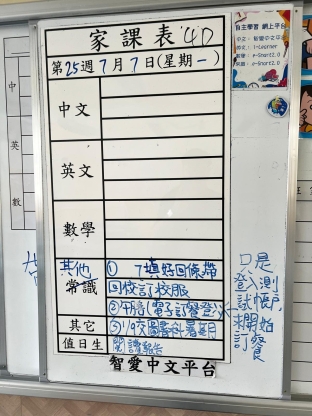 家課表 4D
第25週7月7日(星期一)
中文
英文
數學
其他 ① 填好回條帶
常識 回校訂校服
② 甲膳(電子訂餐登入
其它 ③ 1/9交圖書科暑期
值日生 閱讀報告
智愛中文平台
只是
登入測
試帳戶,
未開始
訂餐
自主學習 網上平台
中文：智愛中文平台
英文：i-Learner
數學：e-Smart2.0
常識：e-Smart2.0
中
英
數